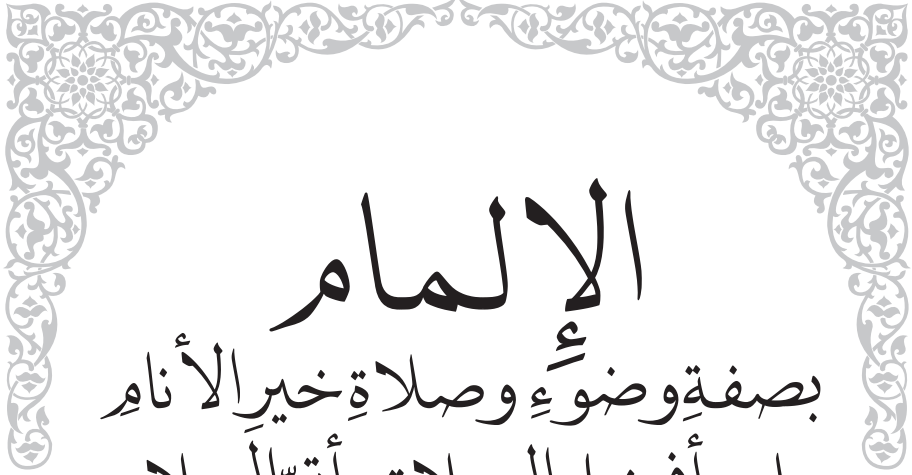 الإلمام
بصفةِ وضوءِ وصلاةِ خيرِ الأنامِ